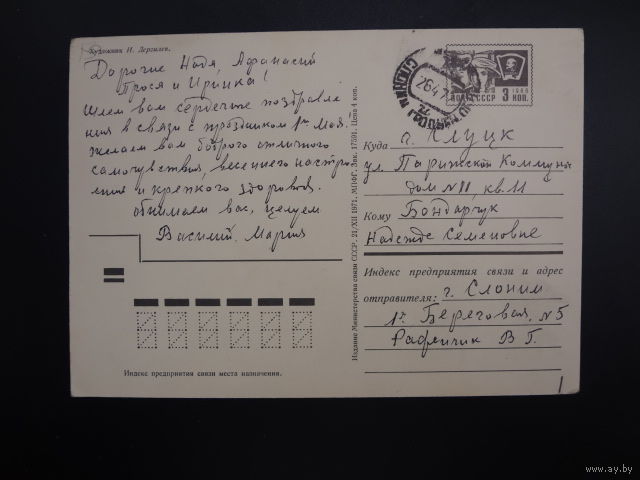 Художник И. Дергилев.
Дорогие Надя, Афанасий
Прося и Иринка!
Шлем вам сердечные поздравле
ния в связи с праздником 1го Мая.
Желаем вам доброго отличного
самочувствия, весеннего настрое
ния и крепкого здоровья.
обнимаем вас, целуем
Василий. Мария
Индекс предприятия связи места назначения.
Издание Министерства связи СССР. 21/XII 1971. МПФГ. Зак. 17591. Цена 4 коп.
26.4.7
ПОЧТА СССР 3 КОП.
1966
Куда г. Слуцк
ул. Парижской Коммуны
дом №11 кв. 11
Кому Бондарчук
Надежде Семеновне
Индекс предприятия связи и адрес
отправителя: г. Слоним
1я Береговая, №5
В Г.
1
www.ay.by